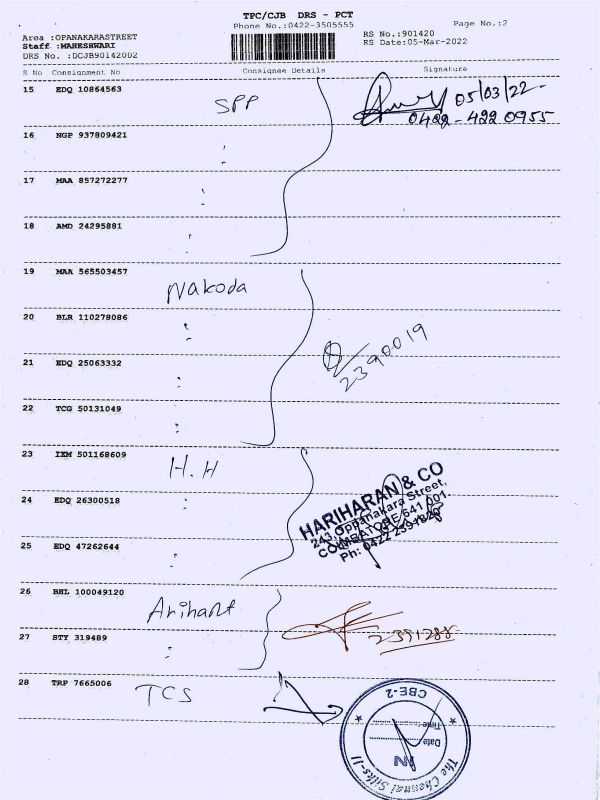 TPC/CJB DRS - PCT
Phone No.:0422-3505555
Page No.:2
Area :OPANAKARASTREET
Staff :MAHESHWARI
DRS No. :DCJB90142002
RS No.:901420
RS Date:05-Mar-2022
S No Consignment No Consignee Details Signature
15 EDQ 10864563 SPP 05/03/22
0422-4220955
16 NGP 937809421
17 MAA 857272277
18 AMD 24295881
19 MAA 565503457 Nakoda
20 BLR 110278086
2390019
21 EDQ 25063332
22 TCG 50131049
23 IXM 501168609 H.H
HARIHARAN & CO
243, Oppanakara Street,
COIMBATORE 641 001.
Ph: 0422
24 EDQ 26300518
25 EDQ 47262644
26 BHL 100049120 Arihant
27 STY 319489
28 TRP 7665006 TCS
CBE-2
Time:
Date
IN
The Chennai Silks-II